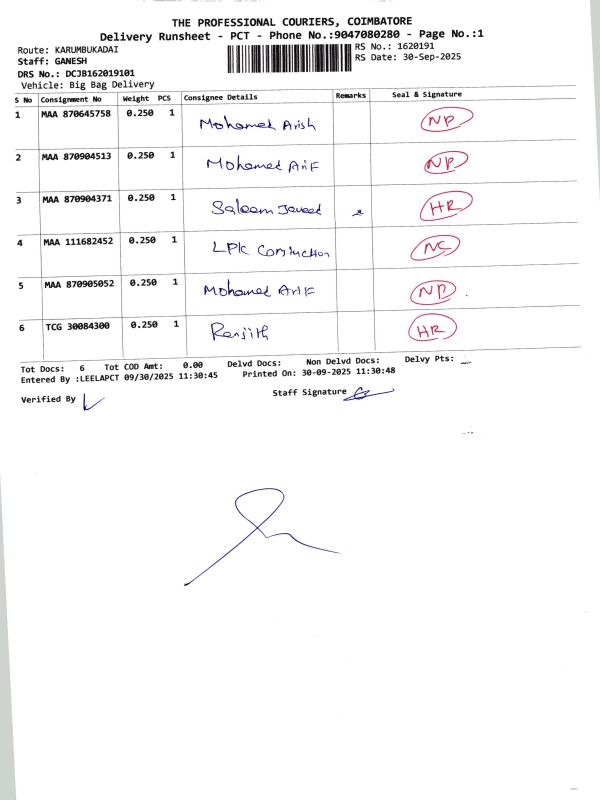 THE PROFESSIONAL COURIERS, COIMBATORE
Delivery Runsheet - PCT - Phone No.:9047080280 - Page No.:1
Route: KARUMBUKADAI
RS No.: 1620191
Staff: GANESH
RS Date: 30-Sep-2025
DRS No.: DCJB162019101
Vehicle: Big Bag Delivery
S No Consignment No Weight PCS Consignee Details Remarks Seal & Signature
1 MAA 870645758 0.250 1 Mohamed Arish NP
2 MAA 870904513 0.250 1 Mohamed Arif NP
3 MAA 870904371 0.250 1 Saleem Javeed HR
4 MAA 111682452 0.250 1 LPK Constuction NC
5 MAA 870905052 0.250 1 Mohamed Arif NP
6 TCG 30084300 0.250 1 Renjith HR
Tot Docs: 6 Tot COD Amt: 0.00 Delvd Docs: Non Delvd Docs: Delvy Pts:
Entered By :LEELAPCT 09/30/2025 11:30:45 Printed On: 30-09-2025 11:30:48
Verified By Staff Signature